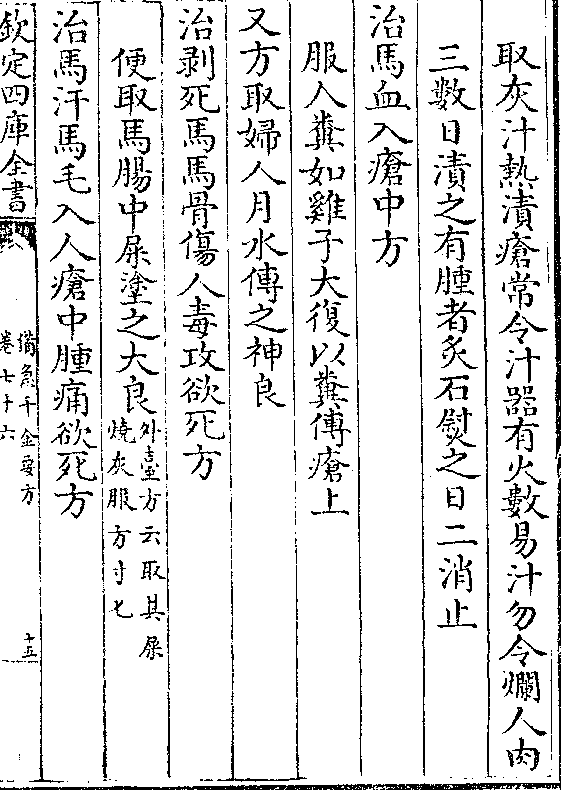 取灰汁熱漬瘡常令汁器有火數易汁勿令爛人肉
三數日漬之有腫者炙石熨之日二消止
治馬血入瘡中方
服人糞如雞子大復以糞傅瘡上
又方取婦人月水傅之神良
治剥死馬馬骨傷人毒攻欲死方
便取馬腸中屎塗之大良
外臺方云取其屎
燒灰服方寸匕
治馬汗馬毛入人瘡中腫痛欲死方
欽定四庫全書
備急千金要方
卷七十六
十五